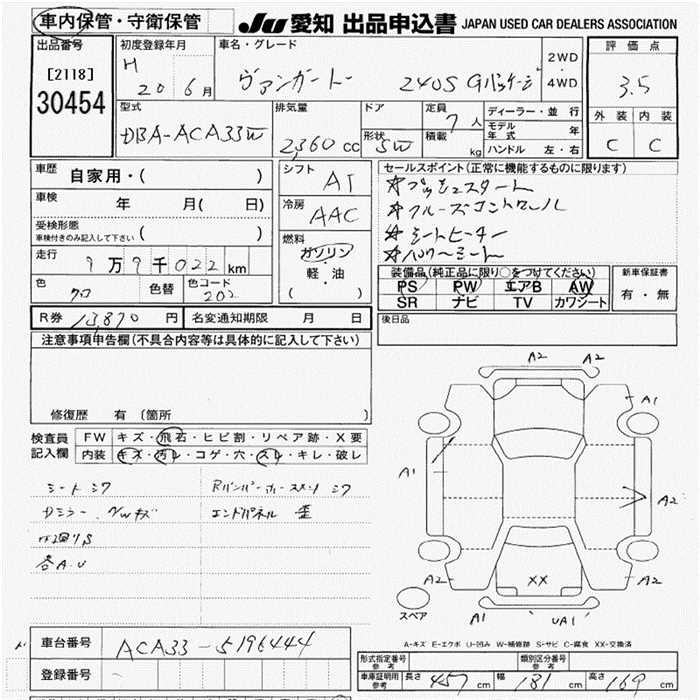 車内保管・守衛保管
JU 愛知 出品申込書 JAPAN USED CAR DEALERS ASSOCIATION
出品番号
[2118]
30454
初度登録年月
H
20 6月
車名・グレード
ヴァンガード 240S Gパッケージ
2WD
4WD
評価点
3.5
外装 内装
C C
型式
DBA-ACA33W
排気量
2,360 cc
ドア
形状
5W
定員
7人
積載
kg
ディーラー・並行
モデル年式 年
ハンドル 左・右
車歴
自家用・( )
車検
年 月( 日)
受検形態
車検付きのみ記入して下さい ( )
走行
9万9千022 km
色
クロ
色替
色コード
202
シフト
AT
冷房
AAC
燃料
ガソリン
・
軽・油
( )
セールスポイント(正常に機能するものに限ります)
☆プッシュスタート
☆クルーズコントロール
☆シートヒーター
☆パワーシート
装備品(純正品に限り○をつけてください)
PS PW エアB AW
SR ナビ TV カワシート
新車保証書
有・無
R券 13,870 円
名変通知期限 月 日
後日品
注意事項申告欄(不具合内容等は具体的に記入して下さい)
修復歴 有 (箇所 )
検査員
記入欄
FW キズ・飛石・ヒビ割・リペア跡・X要
内装 キズ・汚レ・コゲ・穴・スレ・キレ・破レ
シートシワ
Dミラー、
エンドパネル 歪
各A.U
A2 A2
A1
A1
A2
A2 XX A2
スペア
A1 UA1
A-キズ E-エクボ U-凹み W-補修跡 S-サビ C-腐食 XX-交換済
車台番号
ACA33-5196444
登録番号
形式指定番号
参考
類別区分番号
参考
車庫証明用
参考
長さ 457 cm
幅 181 cm
高さ 169 cm